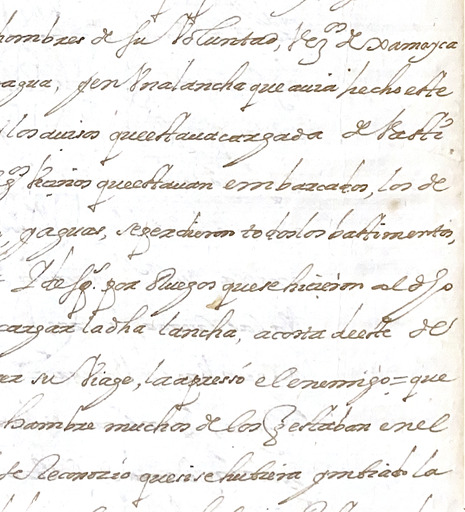 hombres de su Voluntad, Vez.os de xamayca
agua, y en Vna lancha que auia hecho este
los auisos que estaua cargada de Basti
Vezinos que estauan embarcados, los de
yaguas, se perdieron todos los bastimentos,
por Ruegos que se hizieron al dho
cargar la dha lancha, a costa de este
su Viage, la apresó el enemigo = que
hambre muchos de los q estaban en el
se Reconozio que si se hubiera ymbiado la